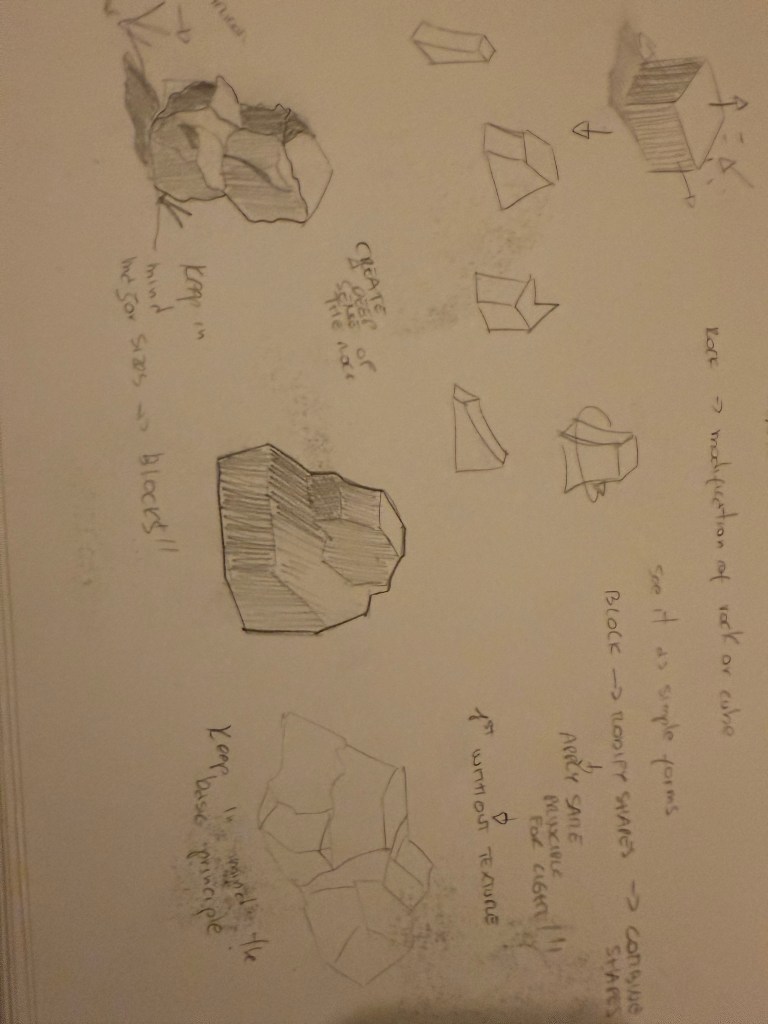 Rock → modification of rock or cube
see it as simple forms
BLOCK → MODIFY SHAPES → COMBINE SHAPES
APPLY SAME
PRINCIPLE
FOR LIGHT!!!
1st WITHOUT TEXTURE
CREATE
A DEEP
SENSE OF
THE ROCK
Keep in
mind
major sizes → Blocks!!
Keep in mind the
basic principle